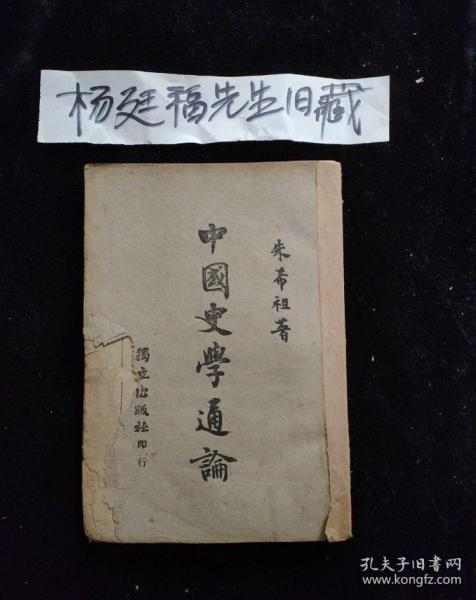 杨廷福先生旧藏
朱希祖著
中國史學通論
獨立出版社印行
孔夫子旧书网
www.kongfz.com